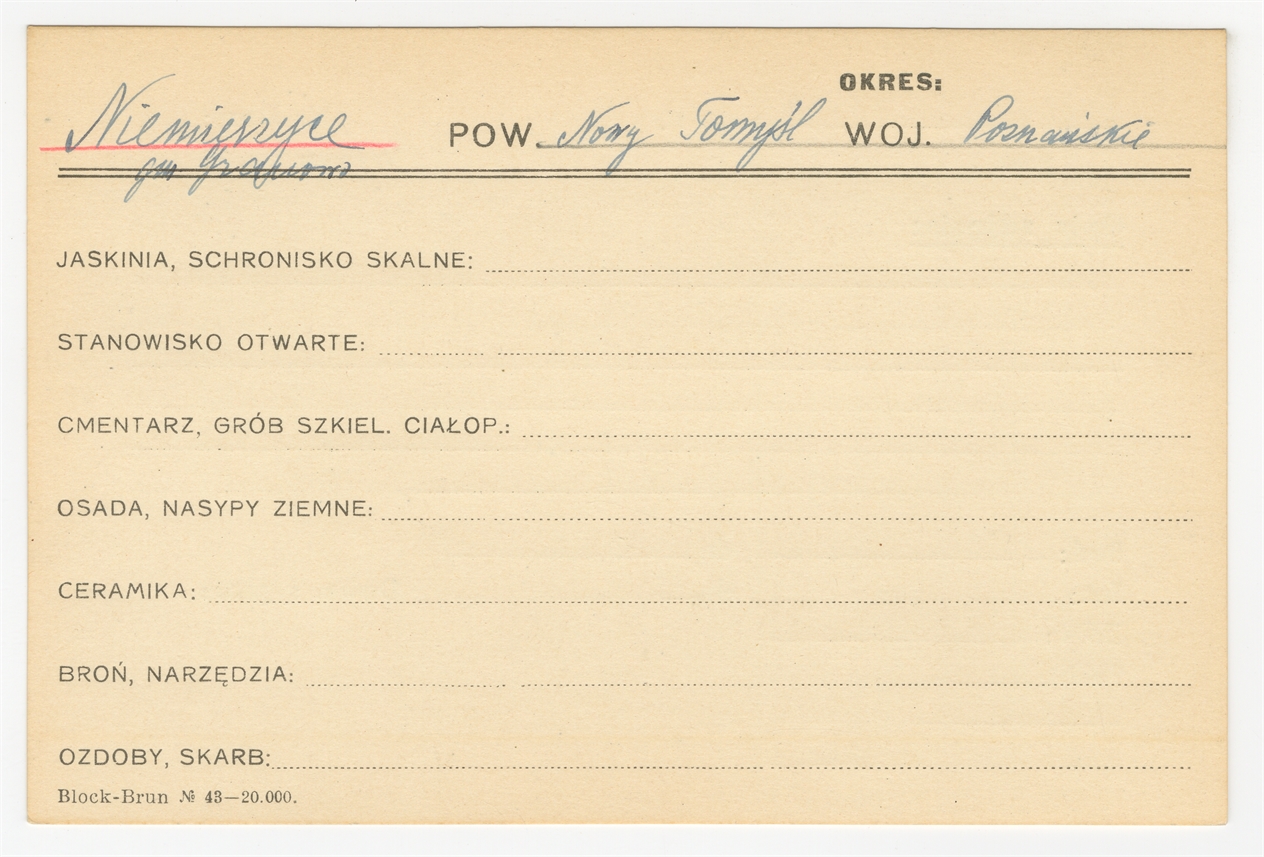 OKRES:
Niemierzyce POW. Nowy Tomyśl WOJ. Poznańskie
gm Granowo
JASKINIA, SCHRONISKO SKALNE:
STANOWISKO OTWARTE:
CMENTARZ, GRÓB SZKIEL. CIAŁOP.:
OSADA, NASYPY ZIEMNE:
CERAMIKA:
BROŃ, NARZĘDZIA:
OZDOBY, SKARB:
Block-Brun № 43—20.000.